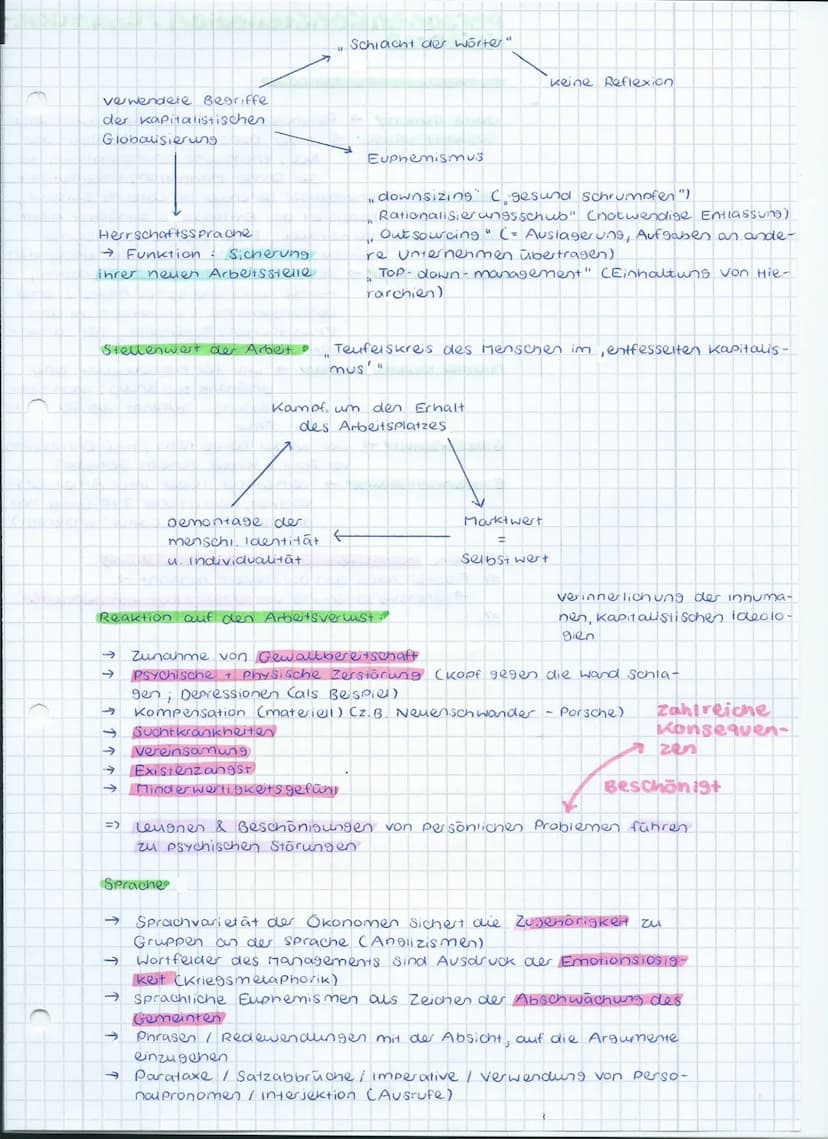 „Schlacht der Wörter"
keine Reflexion
verwendete Begriffe
der kapitalistischen
Globalisierung
Euphemismus
„downsizing" („gesund schrumpfen")
„Rationalisierungsschub" (notwendige Entlassung)
„Outsourcing" (= Auslagerung, Aufgaben an ande-
re Unternehmen übertragen)
„Top-down-management" (Einhaltung von Hie-
rarchien)
Herrschaftssprache
→ Funktion: Sicherung
ihrer neuen Arbeitsstelle
Stellenwert der Arbeit: „Teufelskreis des Menschen im ‚entfesselten Kapitalis-
mus'"
Kampf um den Erhalt
des Arbeitsplatzes
Marktwert
=
Selbstwert
Demontage der
menschl. Identität
u. Individualität
verinnerlichung der inhuma-
nen, kapitalistischen Ideolo-
gien
Reaktion auf den Arbeitsverlust:
→ Zunahme von Gewaltbereitschaft
→ Psychische + Physische Zerstörung (Kopf gegen die Wand schla-
gen; Depressionen (als Beispiel)
→ Kompensation (materiell) (z.B. Neuenschwander - Porsche)
→ Suchtkrankheiten
→ Vereinsamung
→ Existenzangst
→ Minderwertigkeitsgefühl
zahlreiche
Konsequen-
zen
Beschönigt
=> Leugnen & Beschönigungen von persönlichen Problemen führen
zu psychischen Störungen
Sprache
→ Sprachvarietät der Ökonomen sichert die Zugehörigkeit zu
Gruppen an der Sprache (Anglizismen)
→ Wortfelder des Managements sind Ausdruck der Emotionslosig-
keit (Kriegsmetaphorik)
→ Sprachliche Euphemismen als Zeichen der Abschwächung des
Gemeinten
→ Phrasen / Redewendungen mit der Absicht, auf die Argumente
einzugehen
→ Parataxe / Satzabbrüche / Imperative / Verwendung von Perso-
nalpronomen / Interjektion (Ausrufe)